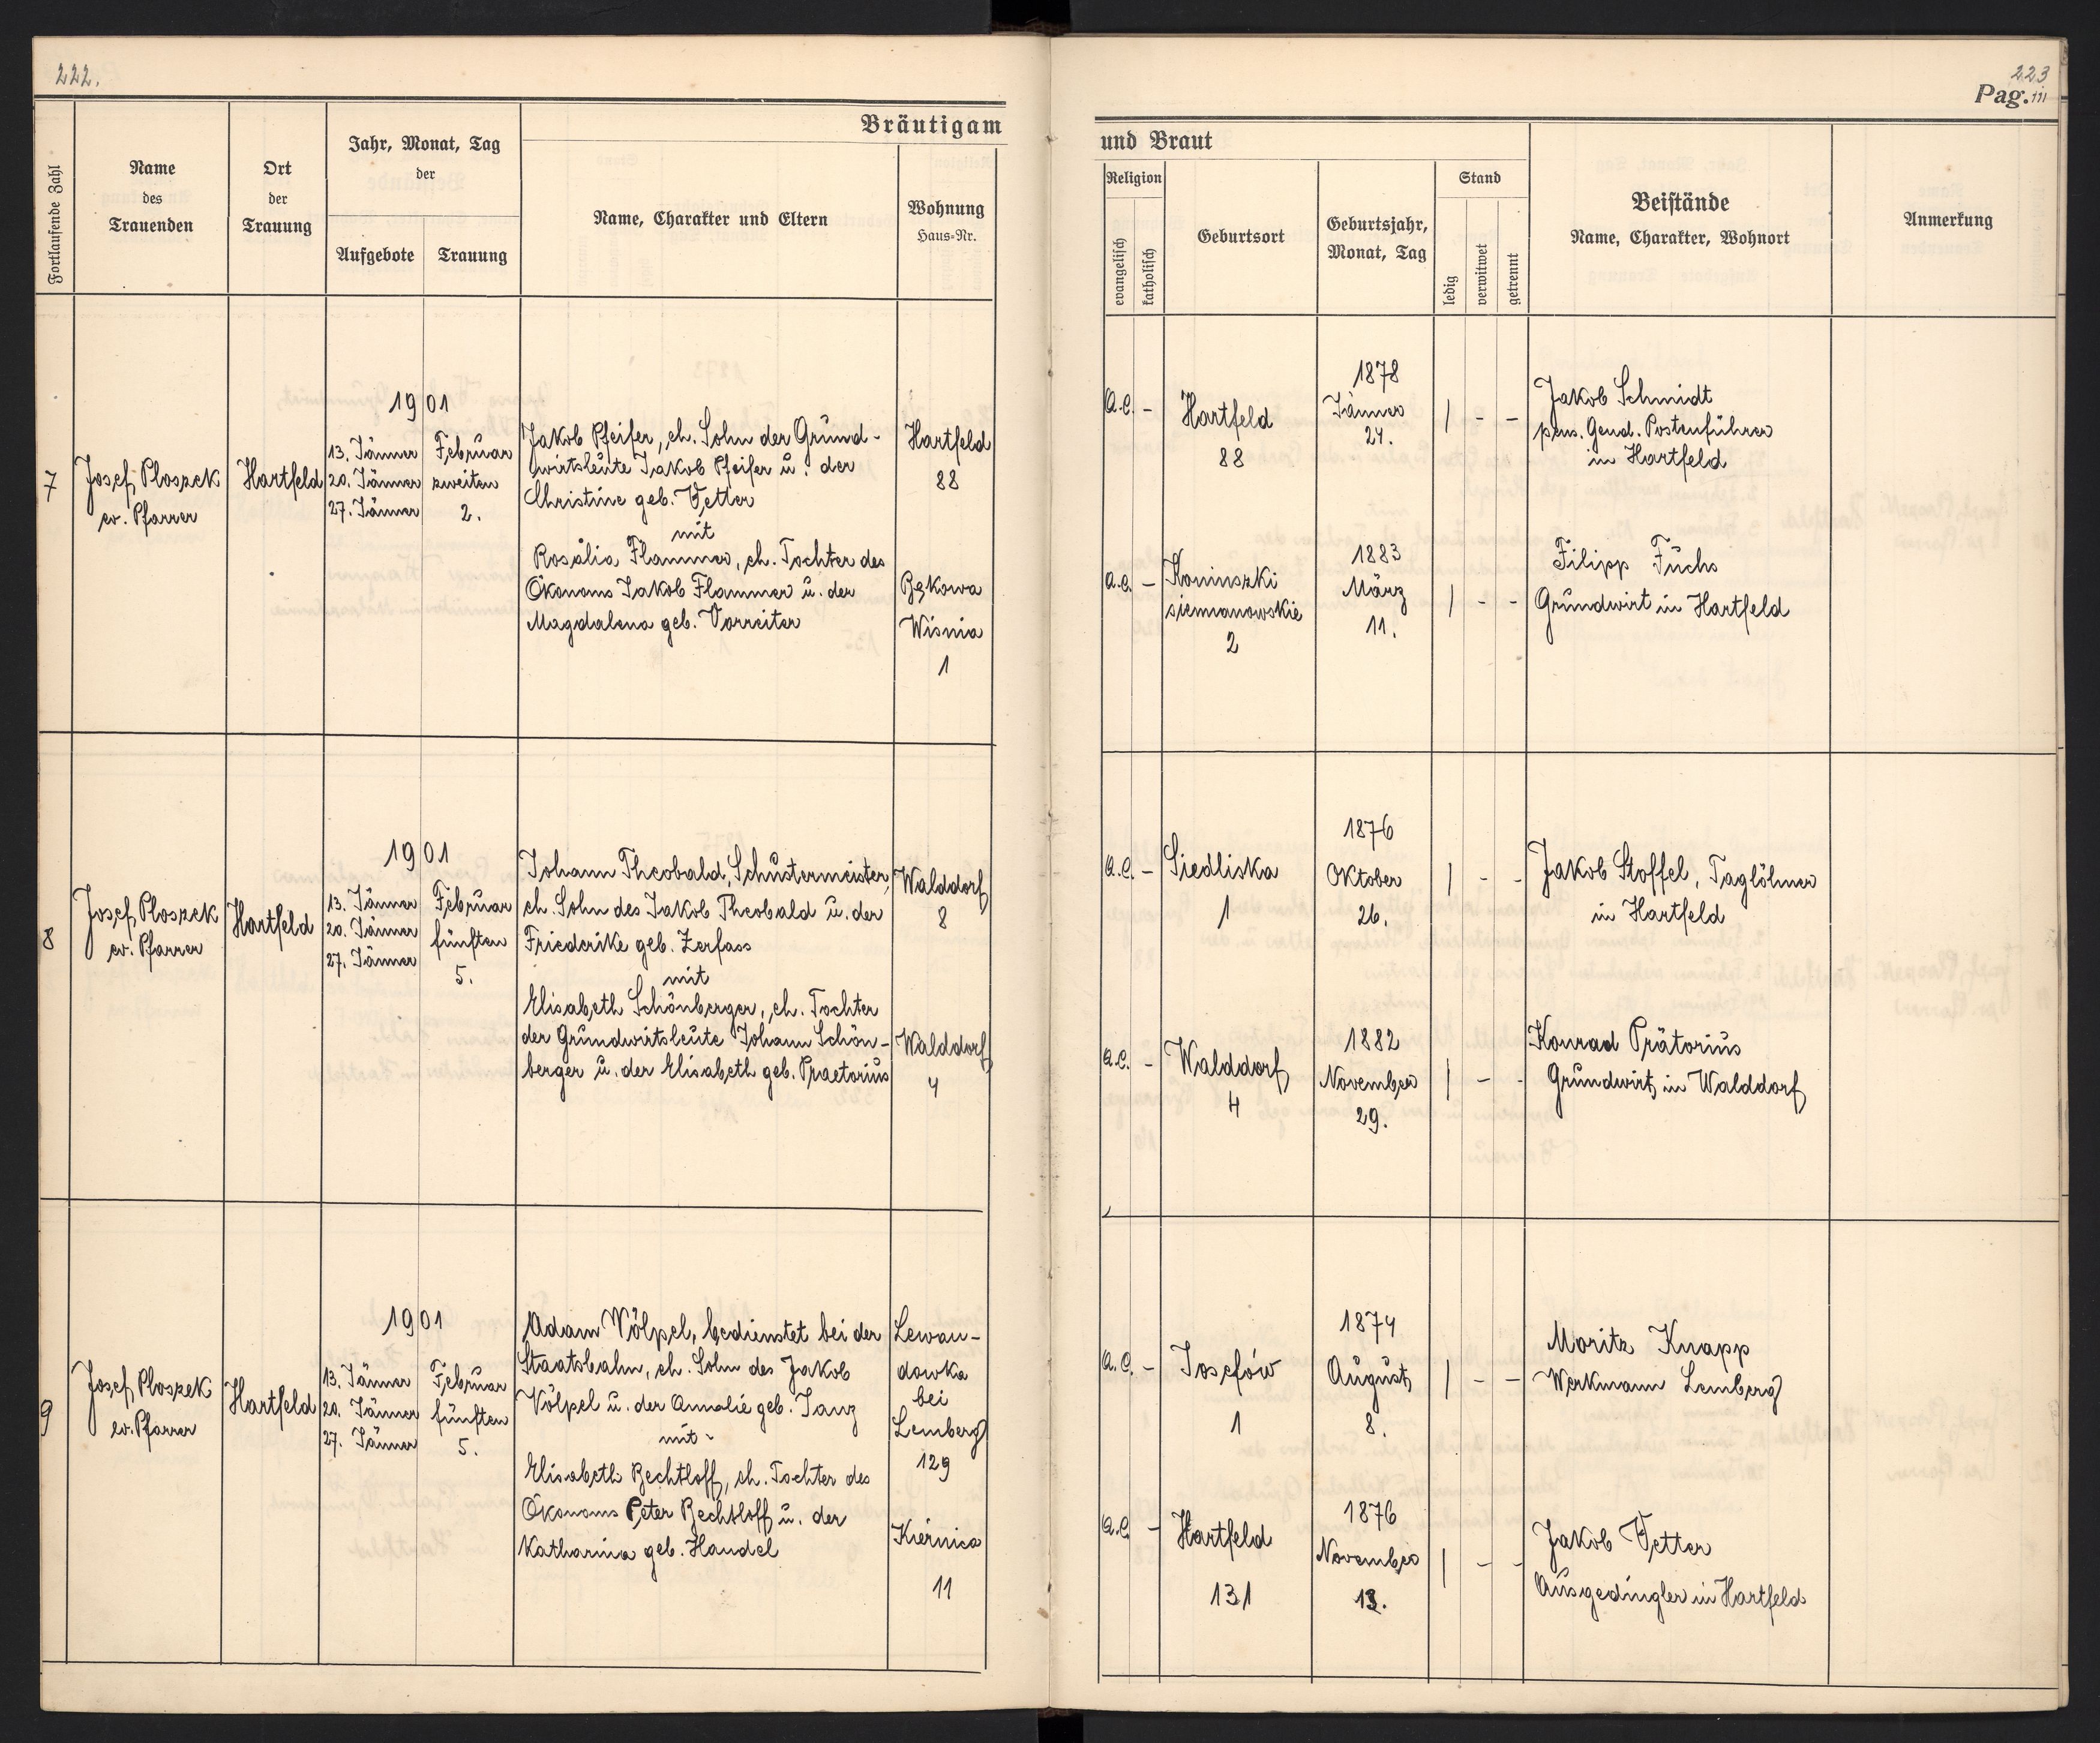 222.
223
Pag. 111
Bräutigam
und Braut
Fortlaufende Zahl
Name
des
Trauenden
Ort
der
Trauung
Jahr, Monat, Tag
der
Aufgebote
Trauung
Name, Charakter und Eltern
Wohnung
Haus-Nr.
Religion
evangelisch
katholisch
Geburtsort
Geburtsjahr,
Monat, Tag
Stand
ledig
verwitwet
getrennt
Beistände
Name, Charakter, Wohnort
Anmerkung
7
Josef Ploszek
ev. Pfarrer
Hartfeld
1901
13. Jänner
20. Jänner
27. Jänner
Februar
zweiten
2.
Jakob Pfeifer, eh. Sohn der Grund-
wirtsleute Jakob Pfeifer u. der
Christine geb. Vetter
mit
Rosalia Flammer, eh. Tochter des
Ökonoms Jakob Flammer u. der
Magdalena geb. Vorreiter
Hartfeld
88
Bąkowa
Wisnia
1
A.C. -
Hartfeld
88
1878
Jänner
24.
| - -
Jakob Schmidt
pens. Gend. Postenführer
in Hartfeld
A.C. -
Koniuszki
siemianowskie
2
1883
März
11.
| - -
Filipp Fuchs
Grundwirt in Hartfeld
8
Josef Ploszek
ev. Pfarrer
Hartfeld
1901
13. Jänner
20. Jänner
27. Jänner
Februar
fünften
5.
Johann Theobald, Schustermeister,
eh. Sohn des Jakob Theobald u. der
Friederike geb. Zerfass
mit
Elisabeth Schönberger, eh. Tochter
der Grundwirtsleute Johann Schön-
berger u. der Elisabeth geb. Praetorius
Walddorf
8
Walddorf
4
A.C. -
Siedliska
1
1876
Oktober
26.
| - -
Jakob Stoffel, Taglöhner
in Hartfeld
A.C. -
Walddorf
4
1882
November
29.
| - -
Konrad Prätorius
Grundwirt in Walddorf
9
Josef Ploszek
ev. Pfarrer
Hartfeld
1901
13. Jänner
20. Jänner
27. Jänner
Februar
fünften
5.
Adam Völpel, bedienstet bei der
Staatsbahn, eh. Sohn des Jakob
Völpel u. der Amalie geb. Janz
mit
Elisabeth Bechtloff, eh. Tochter des
Ökonoms Peter Bechtloff u. der
Katharina geb. Handel
Lewan-
dowka
bei
Lemberg
129
Kiernica
11
A.C. -
Josefów
1
1874
August
8.
| - -
Moritz Knapp
Werkmann Lemberg
A.C. -
Hartfeld
131
1876
November
| - -
Jakob Vetter
Ausgedingler in Hartfeld